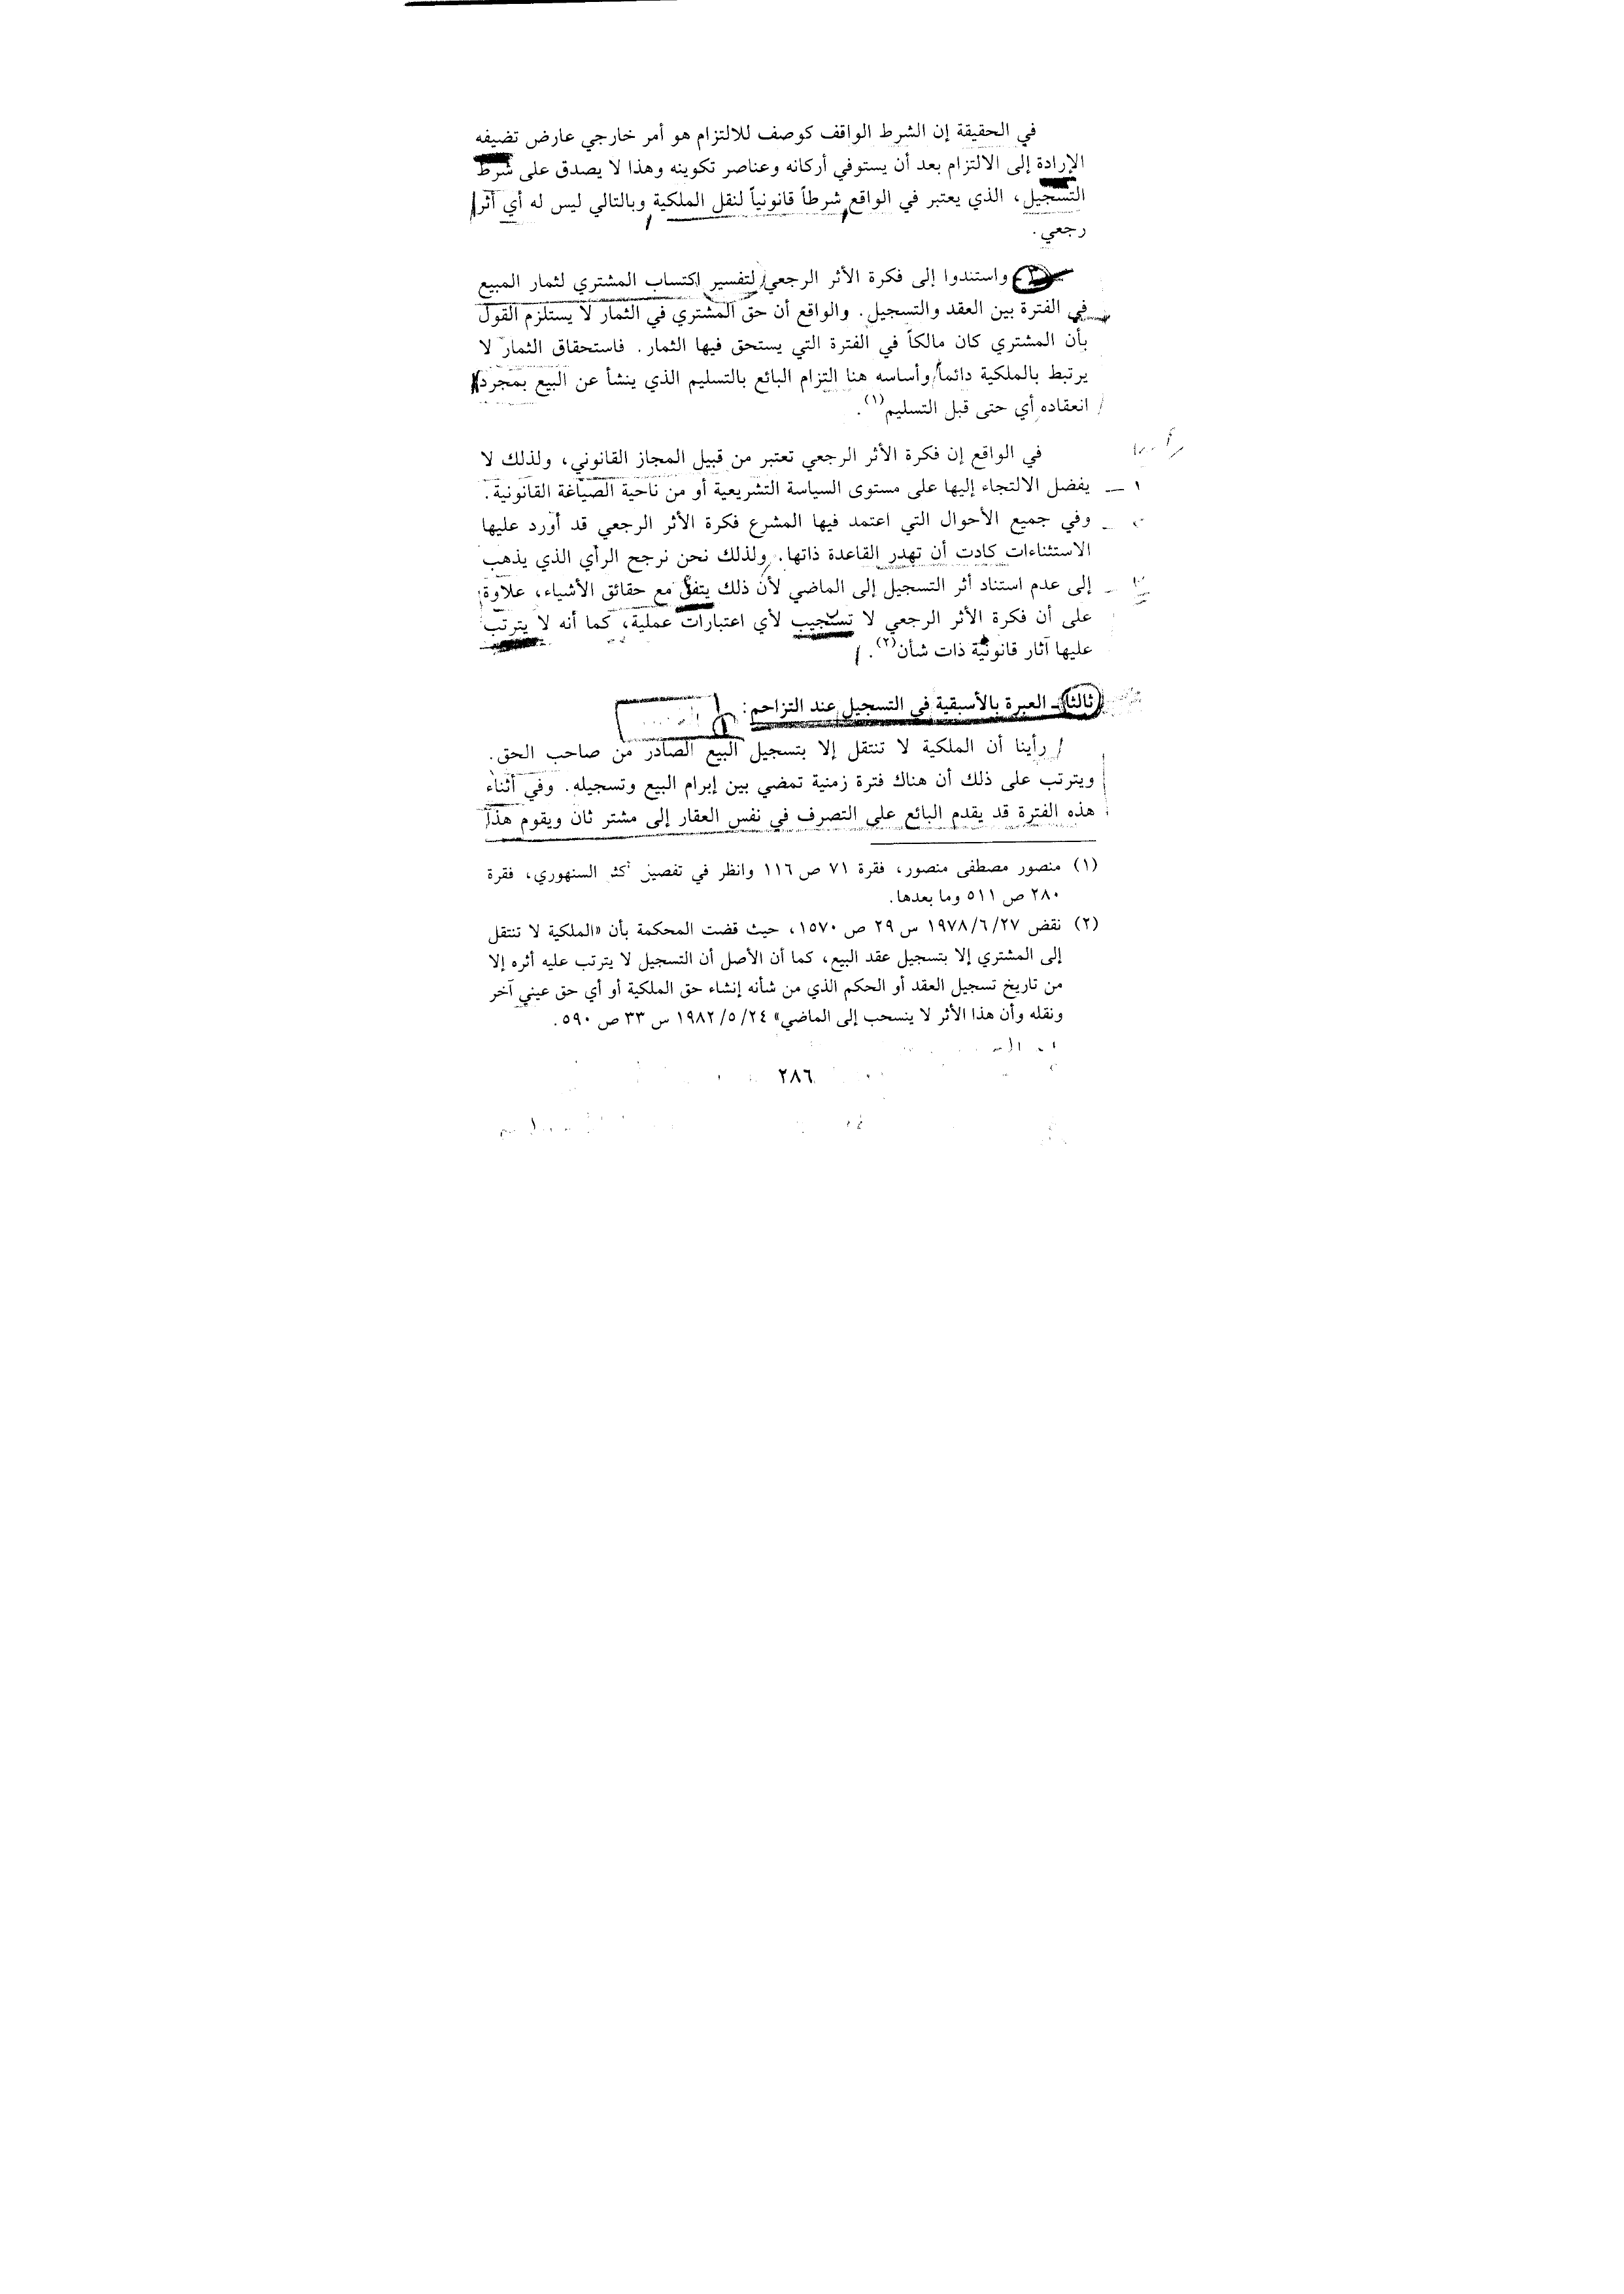 في الحقيقة إن الشرط الواقف كوصف للالتزام هو أمر خارجي عارض تضيفه
الإرادة إلى الالتزام بعد أن يستوفي أركانه وعناصر تكوينه وهذا لا يصدق على شرط
التسجيل، الذي يعتبر في الواقع شرطاً قانونياً لنقل الملكية وبالتالي ليس له أي أثر
رجعي.
واستندوا إلى فكرة الأثر الرجعي لتفسير اكتساب المشتري لثمار المبيع
في الفترة بين العقد والتسجيل. والواقع أن حق المشتري في الثمار لا يستلزم القول
بأن المشتري كان مالكاً في الفترة التي يستحق فيها الثمار. فاستحقاق الثمار لا
يرتبط بالملكية دائماً وأساسه هنا التزام البائع بالتسليم الذي ينشأ عن البيع بمجرد
انعقاده أي حتى قبل التسليم(١).
في الواقع إن فكرة الأثر الرجعي تعتبر من قبيل المجاز القانوني، ولذلك لا
١ ـ يفضل الالتجاء إليها على مستوى السياسة التشريعية أو من ناحية الصياغة القانونية.
وفي جميع الأحوال التي اعتمد فيها المشرع فكرة الأثر الرجعي قد أورد عليها
الاستثناءات كادت أن تهدر القاعدة ذاتها. ولذلك نحن نرجح الرأي الذي يذهب
إلى عدم استناد أثر التسجيل إلى الماضي لأن ذلك يتفق مع حقائق الأشياء، علاوة
على أن فكرة الأثر الرجعي لا تستجيب لأي اعتبارات عملية، كما أنه لا يترتب
عليها آثار قانونية ذات شأن(٢).
ثالثاً ـ العبرة بالأسبقية في التسجيل عند التزاحم:
رأينا أن الملكية لا تنتقل إلا بتسجيل البيع الصادر من صاحب الحق.
ويترتب على ذلك أن هناك فترة زمنية تمضي بين إبرام البيع وتسجيله. وفي أثناء
هذه الفترة قد يقدم البائع على التصرف في نفس العقار إلى مشتر ثان ويقوم هذا
(١) منصور مصطفى منصور، فقرة ٧١ ص ١١٦ وانظر في تفصيل أكثر السنهوري، فقرة
٢٨٠ ص ٥١١ وما بعدها.
(٢) نقض ١٩٧٨/٦/٢٧ س ٢٩ ص ١٥٧٠، حيث قضت المحكمة بأن «الملكية لا تنتقل
إلى المشتري إلا بتسجيل عقد البيع، كما أن الأصل أن التسجيل لا يترتب عليه أثره إلا
من تاريخ تسجيل العقد أو الحكم الذي من شأنه إنشاء حق الملكية أو أي حق عيني آخر
ونقله وأن هذا الأثر لا ينسحب إلى الماضي» ١٩٨٢/٥/٢٤ س ٣٣ ص ٥٩٠.
٢٨٦